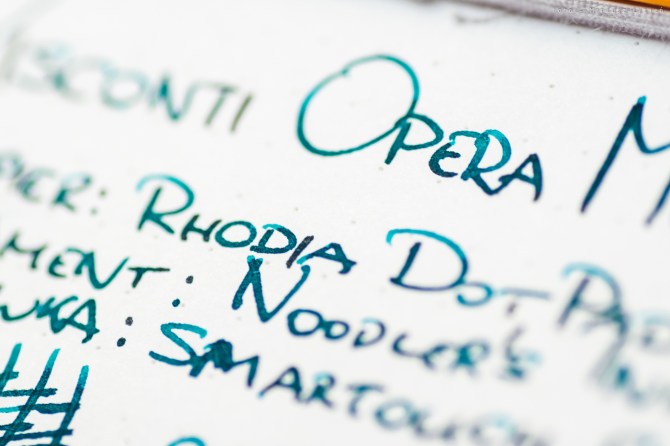 VISCONTI OPERA M
PIER: RHODIA DOT PAD
MENT: NOODLER'S INK
WKA: SMARTOUCH